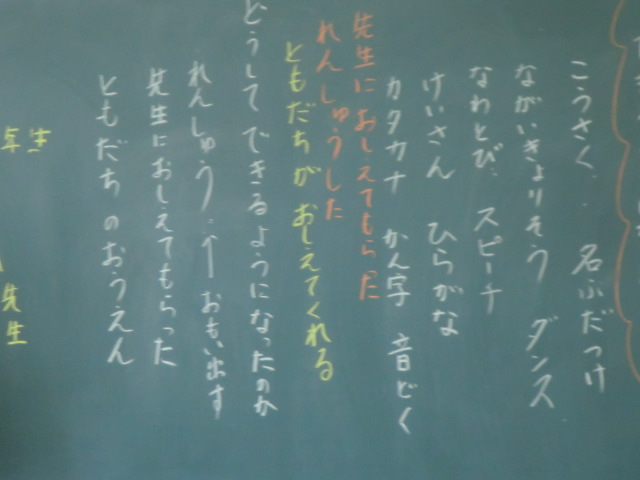 こうさく 名ふだつけ
ながいきょりそう ダンス
なわとび スピーチ
けいさん ひらがな
カタカナ かん字 音どく
先生におしえてもらった
れんしゅうした
ともだちがおしえてくれる
どうしてできるようになったのか
れんしゅう…↑おもい出す
先生におしえてもらった
ともだちのおうえん
年生
先生